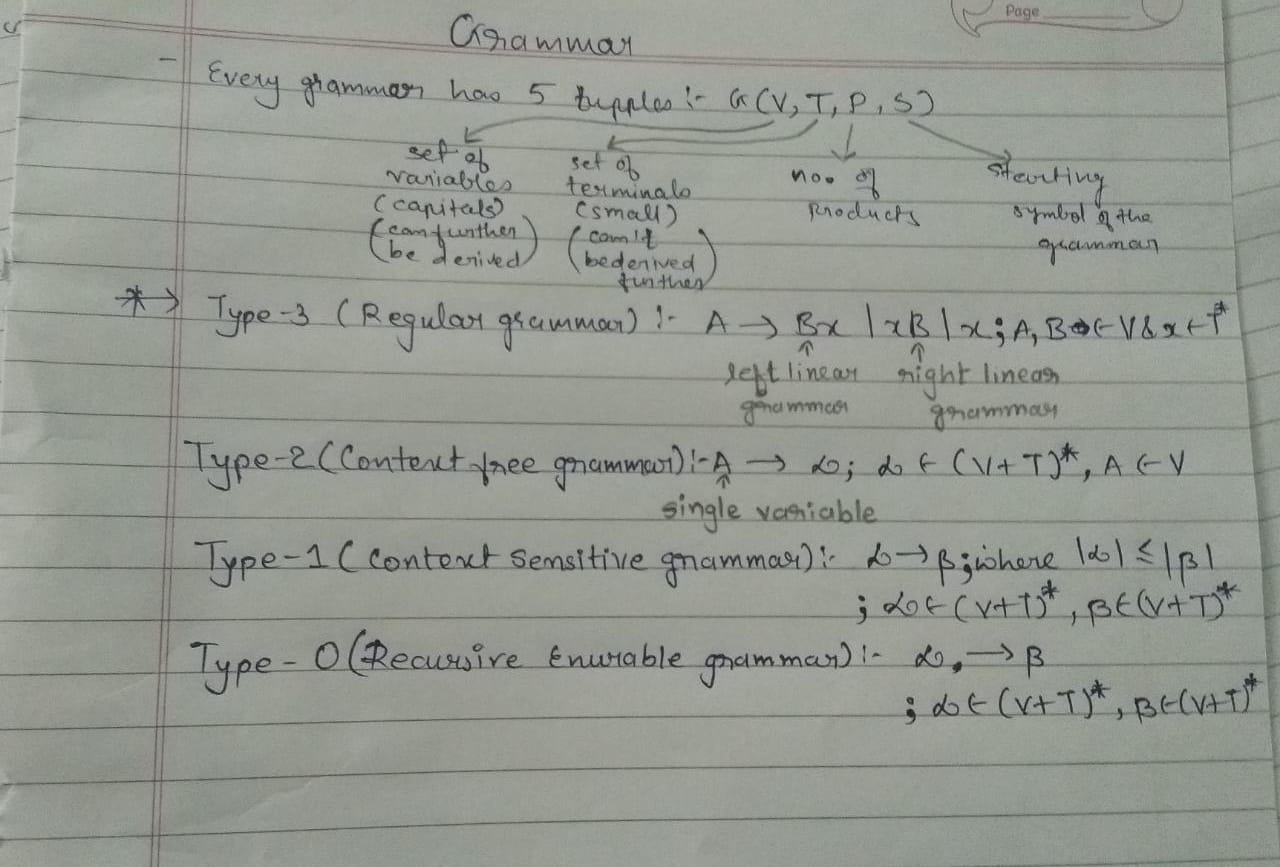 Page
Grammar
- Every grammar has 5 tupples :- G(V, T, P, S)
set of variables (capitals) (can further be derived)
set of terminals (small) (can't be derived further)
no. of Products
starting symbol of the grammar
* → Type-3 (Regular grammar) :- A → Bx | xB | x ; A, B ∈ V & x ∈ T*
↑ left linear grammar
↑ right linear grammar
Type-2 (Context free grammar) :- A → α ; α ∈ (V+T)*, A ∈ V
↑ single variable
Type-1 (Context Sensitive grammar) :- α → β ; where |α| ≤ |β|
; α ∈ (V+T)*, β ∈ (V+T)*
Type-0 (Recursive Enurable grammar) :- α → β
; α ∈ (V+T)*, β ∈ (V+T)*